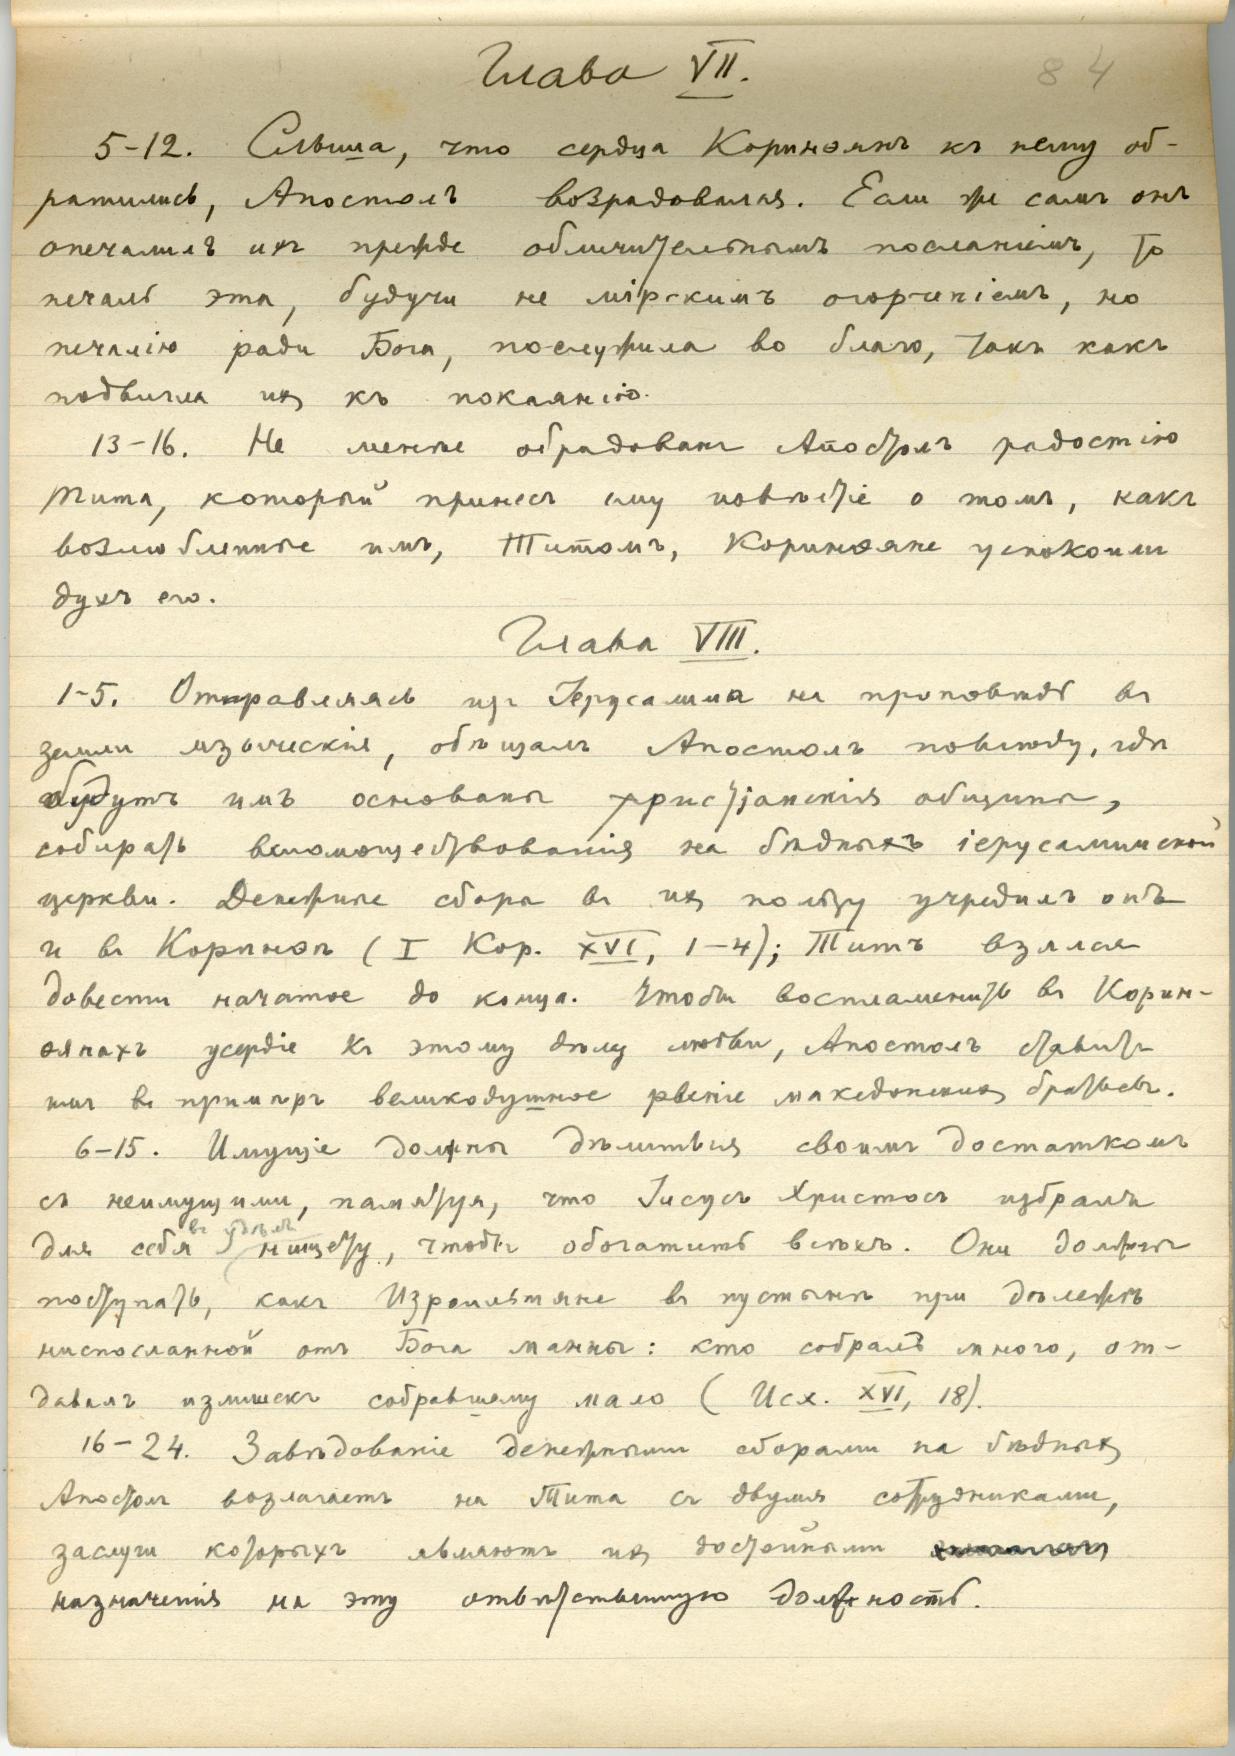 84
Глава VII.
5-12. Слыша, что сердца Коринѳянъ къ нему об-
ратились, Апостолъ возрадовался. Если же самъ онъ
опечалилъ ихъ прежде обличительнымъ посланіемъ, то
печаль эта, будучи не мірскимъ огорченіемъ, но
печалію ради Бога, послужила во благо, такъ какъ
подвигла ихъ къ покаянію.
13-16. Не менѣе обрадованъ Апостолъ радостію
Тита, который принесъ ему повѣстіе о томъ, какъ
возлюбленные имъ, Титомъ, Коринѳяне успокоили
духъ его.
Глава VIII.
1-5. Отправляясь изъ Іерусалима на проповѣдь въ
земли языческія, обѣщалъ Апостолъ повсюду, гдѣ
будутъ имъ основаны христіанскія общины,
собирать вспомоществованія на бѣдныхъ іерусалимской
церкви. Денежные сборы въ ихъ пользу учредилъ онъ
и въ Коринѳѣ (I Кор. XVI, 1-4); Титъ взялся
довести начатое до конца. Чтобы воспламенить въ Корин-
ѳянахъ усердіе къ этому дѣлу любви, Апостолъ ставитъ
имъ въ примѣръ великодушное рвеніе македонскихъ братьевъ.
6-15. Имущіе должны дѣлиться своимъ достаткомъ
съ неимущими, памятуя, что Іисусъ Христосъ избралъ
для себя въ удѣлъ нищету, чтобы обогатить всѣхъ. Они должны
поступать, какъ Израильтяне въ пустынѣ при дѣлежѣ
ниспосланной отъ Бога манны: кто собралъ много, от-
давалъ излишекъ собравшему мало (Исх. XVI, 18).
16-24. Завѣдованіе денежными сборами на бѣдныхъ
Апостолъ возлагаетъ на Тита съ двумя сотрудниками,
заслуги которыхъ являютъ ихъ достойными
назначенія на эту отвѣтственную должность.